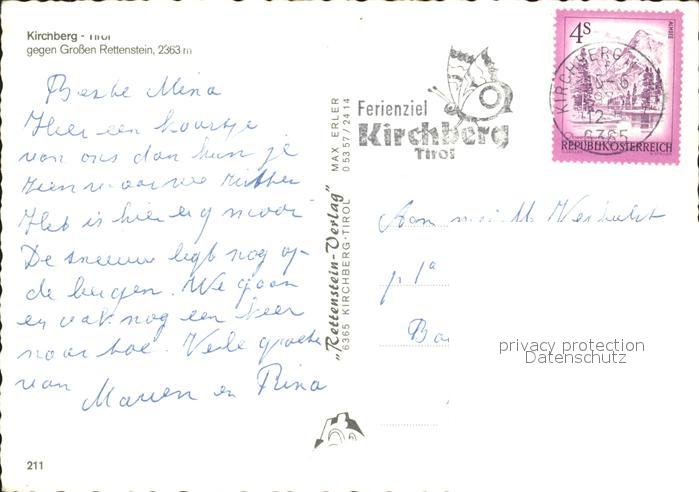 Kirchberg - Tirol
gegen Großen Rettenstein, 2363 m
Beste Mina
Hier een kaartje
van ons dan kun je
zien waar we zitten
Het is hier erg mooi
De sneeuw ligt nog op
de bergen. We gaan
er vak nog een keer
naar toe. Vele groeten
van Marien en Rina
211
"Rettenstein-Verlag"
6365 KIRCHBERG-TIROL
MAX ERLER
05357/2414
Ferienziel
Kirchberg
Tirol
4S
ALMSEE
REPUBLIK ÖSTERREICH
KIRCHBERG
12
6365
Aan
Ba
privacy protection
Datenschutz